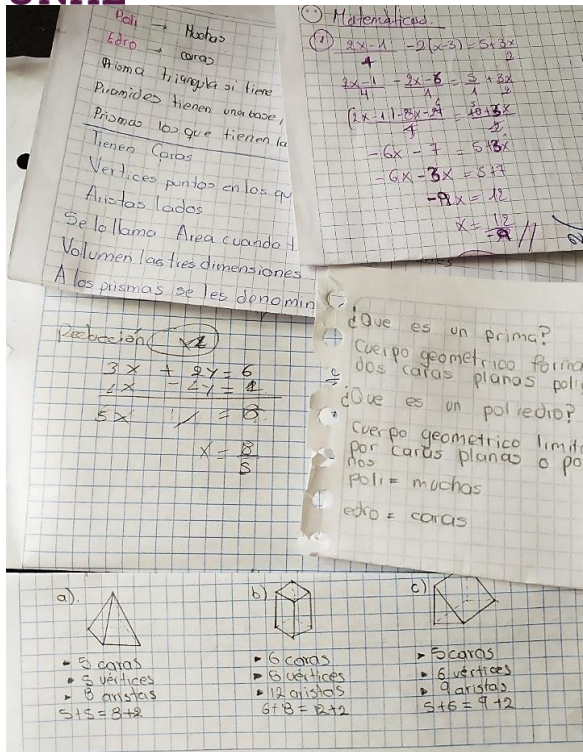 Poli → Muchas
Edro → caras
Prisma triangula si tiene
Piramides tienen una base,
Prismas los que tienen la
Tienen Caras
Vertices puntos en los qu
Aristas lados
Se lo llama Area cuando
Volumen las tres dimensiones
A los prismas se les denomin
Matemáticas.
1) 2x-1/4 - 2(x-3) = 5+3x/2
2x-1/4 - 2x-6/1 = 5/1 + 3x/2
-6x - 7 = 5+3x
-6x - 3x = 5+7
-9x = 12
x = 12/9 //
Reducción
3x + 2y = 6
2x - 2y = 2
5x / = 8
x = 8/5
¿Que es un prima?
Cuerpo geométrico forma
dos caras planas poli
¿Que es un poliedro?
Cuerpo geometrico limit
por caras planas o po
nos
Poli = muchas
edro = caras
a).
• 5 caras
• 5 vértices
• 8 aristas
5+5=8+2
b)
▸ 6 caras
▸ 8 vértices
▸ 12 aristas
6+8=12+2
c)
▸ 5 caras
▸ 6 vértices
▸ 9 aristas
5+6=9+2